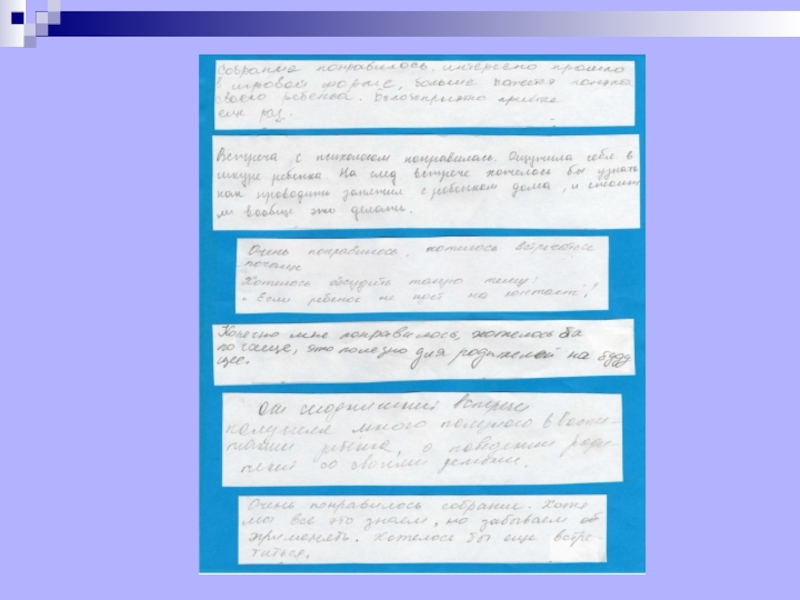 Собрание понравилось. интересно прошло
в игровой форме, больше
своего ребенка.
еще раз.
Встреча с психологом понравилась. Ощутила себя в
шкуре ребенка. На след встрече хотелось бы узнать
как проводить занятия с ребенком дома, и стоит
ли вообще это делать.
Очень понравилось, хотелось встречаться
почаще
Хотелось обсудить такую тему:
"Если ребенок не идет на контакт"!
Конечно мне понравилось, хотелось ба
почаще, это полезно для родителей на буду
щее.
От сегодняшней встречи
получили много полезного в воспи-
тании ребёнка, о поведении роди-
телей со своими детьми.
Очень понравилось собрание. Хотя
мы все это знаем, но забываем об
применять. Хотелось бы еще встре
титься.